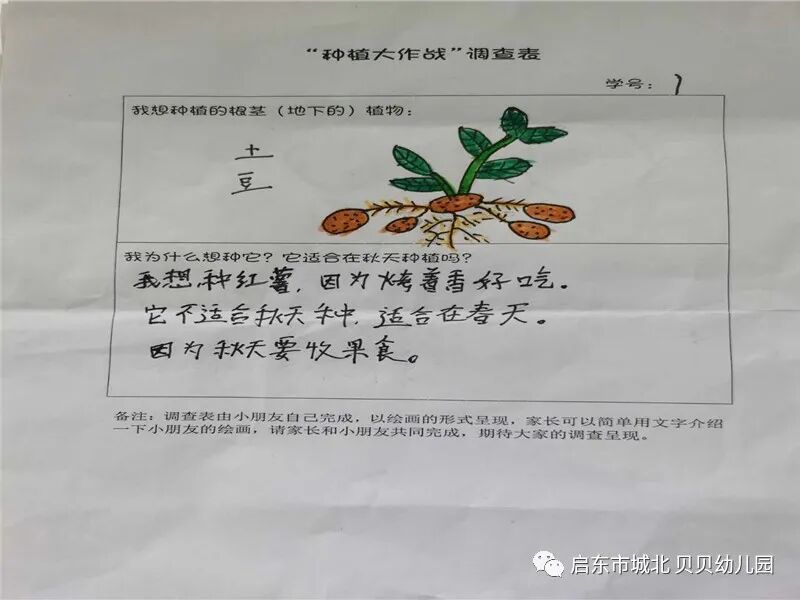 “种植大作战”调查表
学号：1
我想种植的根茎（地下的）植物：
土
豆
我为什么想种它？它适合在秋天种植吗？
我想种红薯，因为烤着香好吃。
它不适合秋天种，适合在春天。
因为秋天要收果食。
备注：调查表由小朋友自己完成，以绘画的形式呈现，家长可以简单用文字介绍
一下小朋友的绘画，请家长和小朋友共同完成，期待大家的调查呈现。
启东市城北 贝贝幼儿园